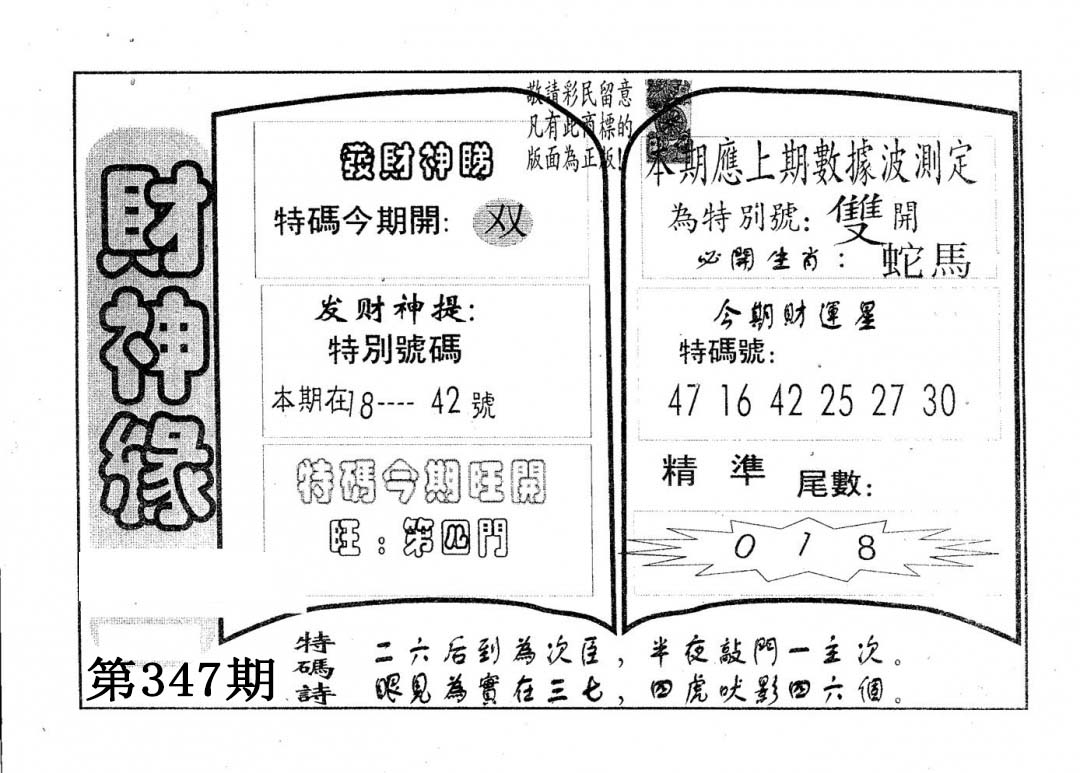 財神緣
第347期
敬請彩民留意
凡有此商標的
版面為正版!
發財神睇
特碼今期開: 双
发财神提:
特別號碼
本期在18---- 42號
特碼今期旺開
旺:第四門
本期應上期數據波測定
為特別號:雙開
必開生肖:蛇馬
今期財運星
特碼號:
47 16 42 25 27 30
精準 尾數:
0 1 8
特碼詩
二六后到為次臣,半夜敲門一主次。
眼見為實在三七,四虎吠影四六個。